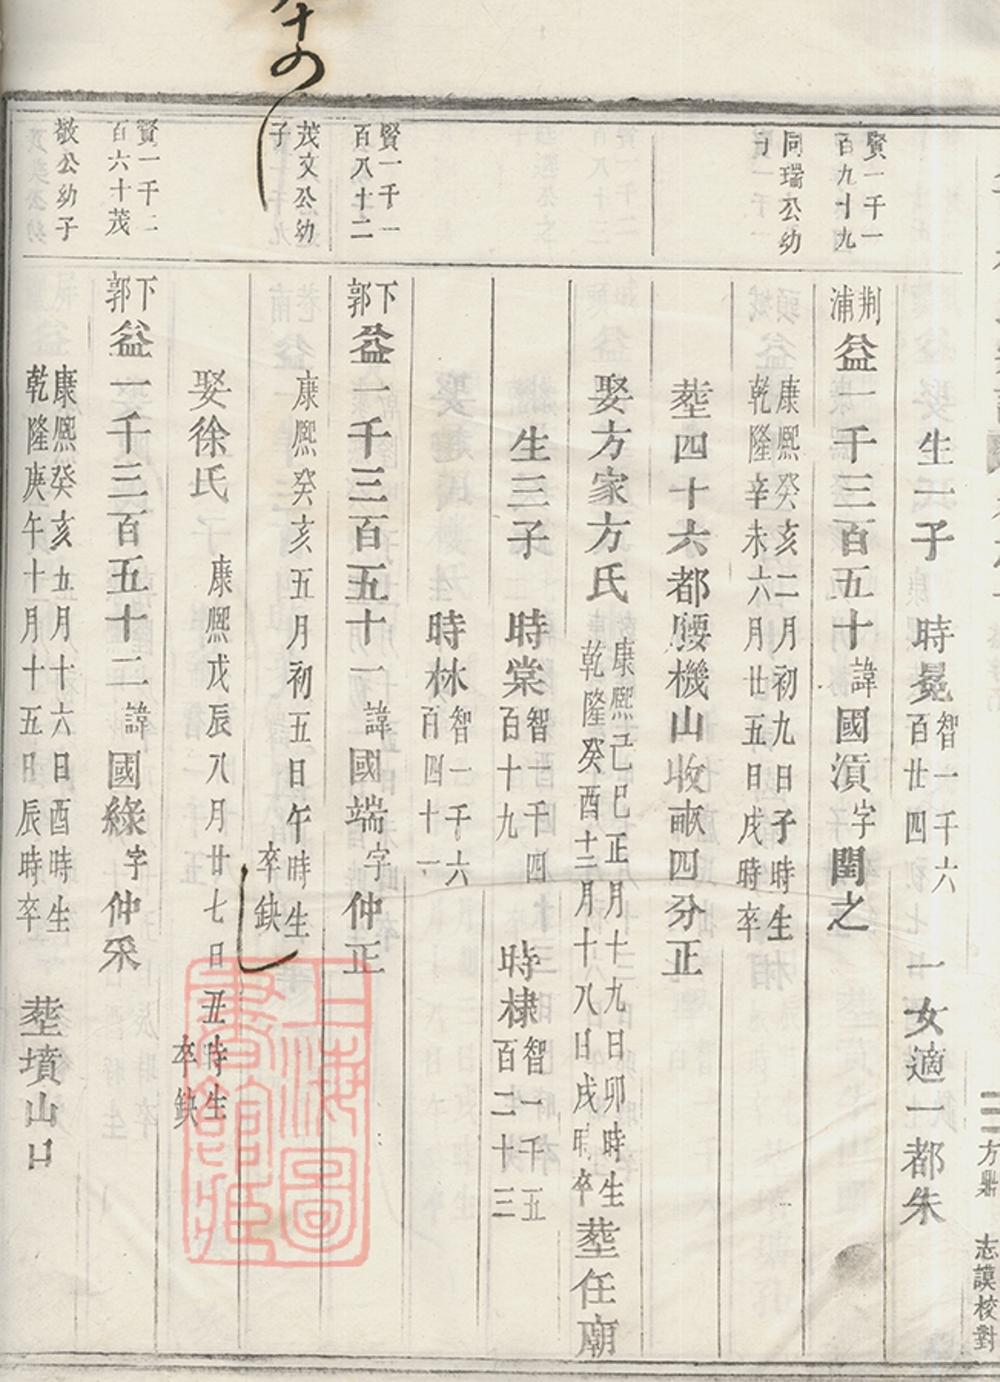 生一子 時冕 智一千六百廿四 一女適一都朱
賢一千一百九十九
同瑞公幼
荆浦 益一千三百五十 諱國湏 字閏之
康熙癸亥二月初九日子時生
乾隆辛未六月廿五日戌時卒
塟四十六都腰機山收畝四分正
娶方家方氏
康熙己巳正月十九日卯時生
乾隆癸酉十二月十八日戌時卒
塟任廟
生三子 時棠 智一千四百十九 時棣 智一千五百二十三
時林 智一千六百四十一
賢一千一百八十二
茂文公幼子
下郭 益一千三百五十一 諱國端 字仲正
康熙癸亥五月初五日午時生
卒缺
娶徐氏
康熙戊辰八月廿七日丑時生
卒缺
賢一千二百六十茂
敬公幼子
下郭 益一千三百五十二 諱國綠 字仲采
康熙癸亥五月十六日酉時生
乾隆庚午十月十五日辰時卒
塟墳山
方鼎 志謨校對
上海圖書館藏